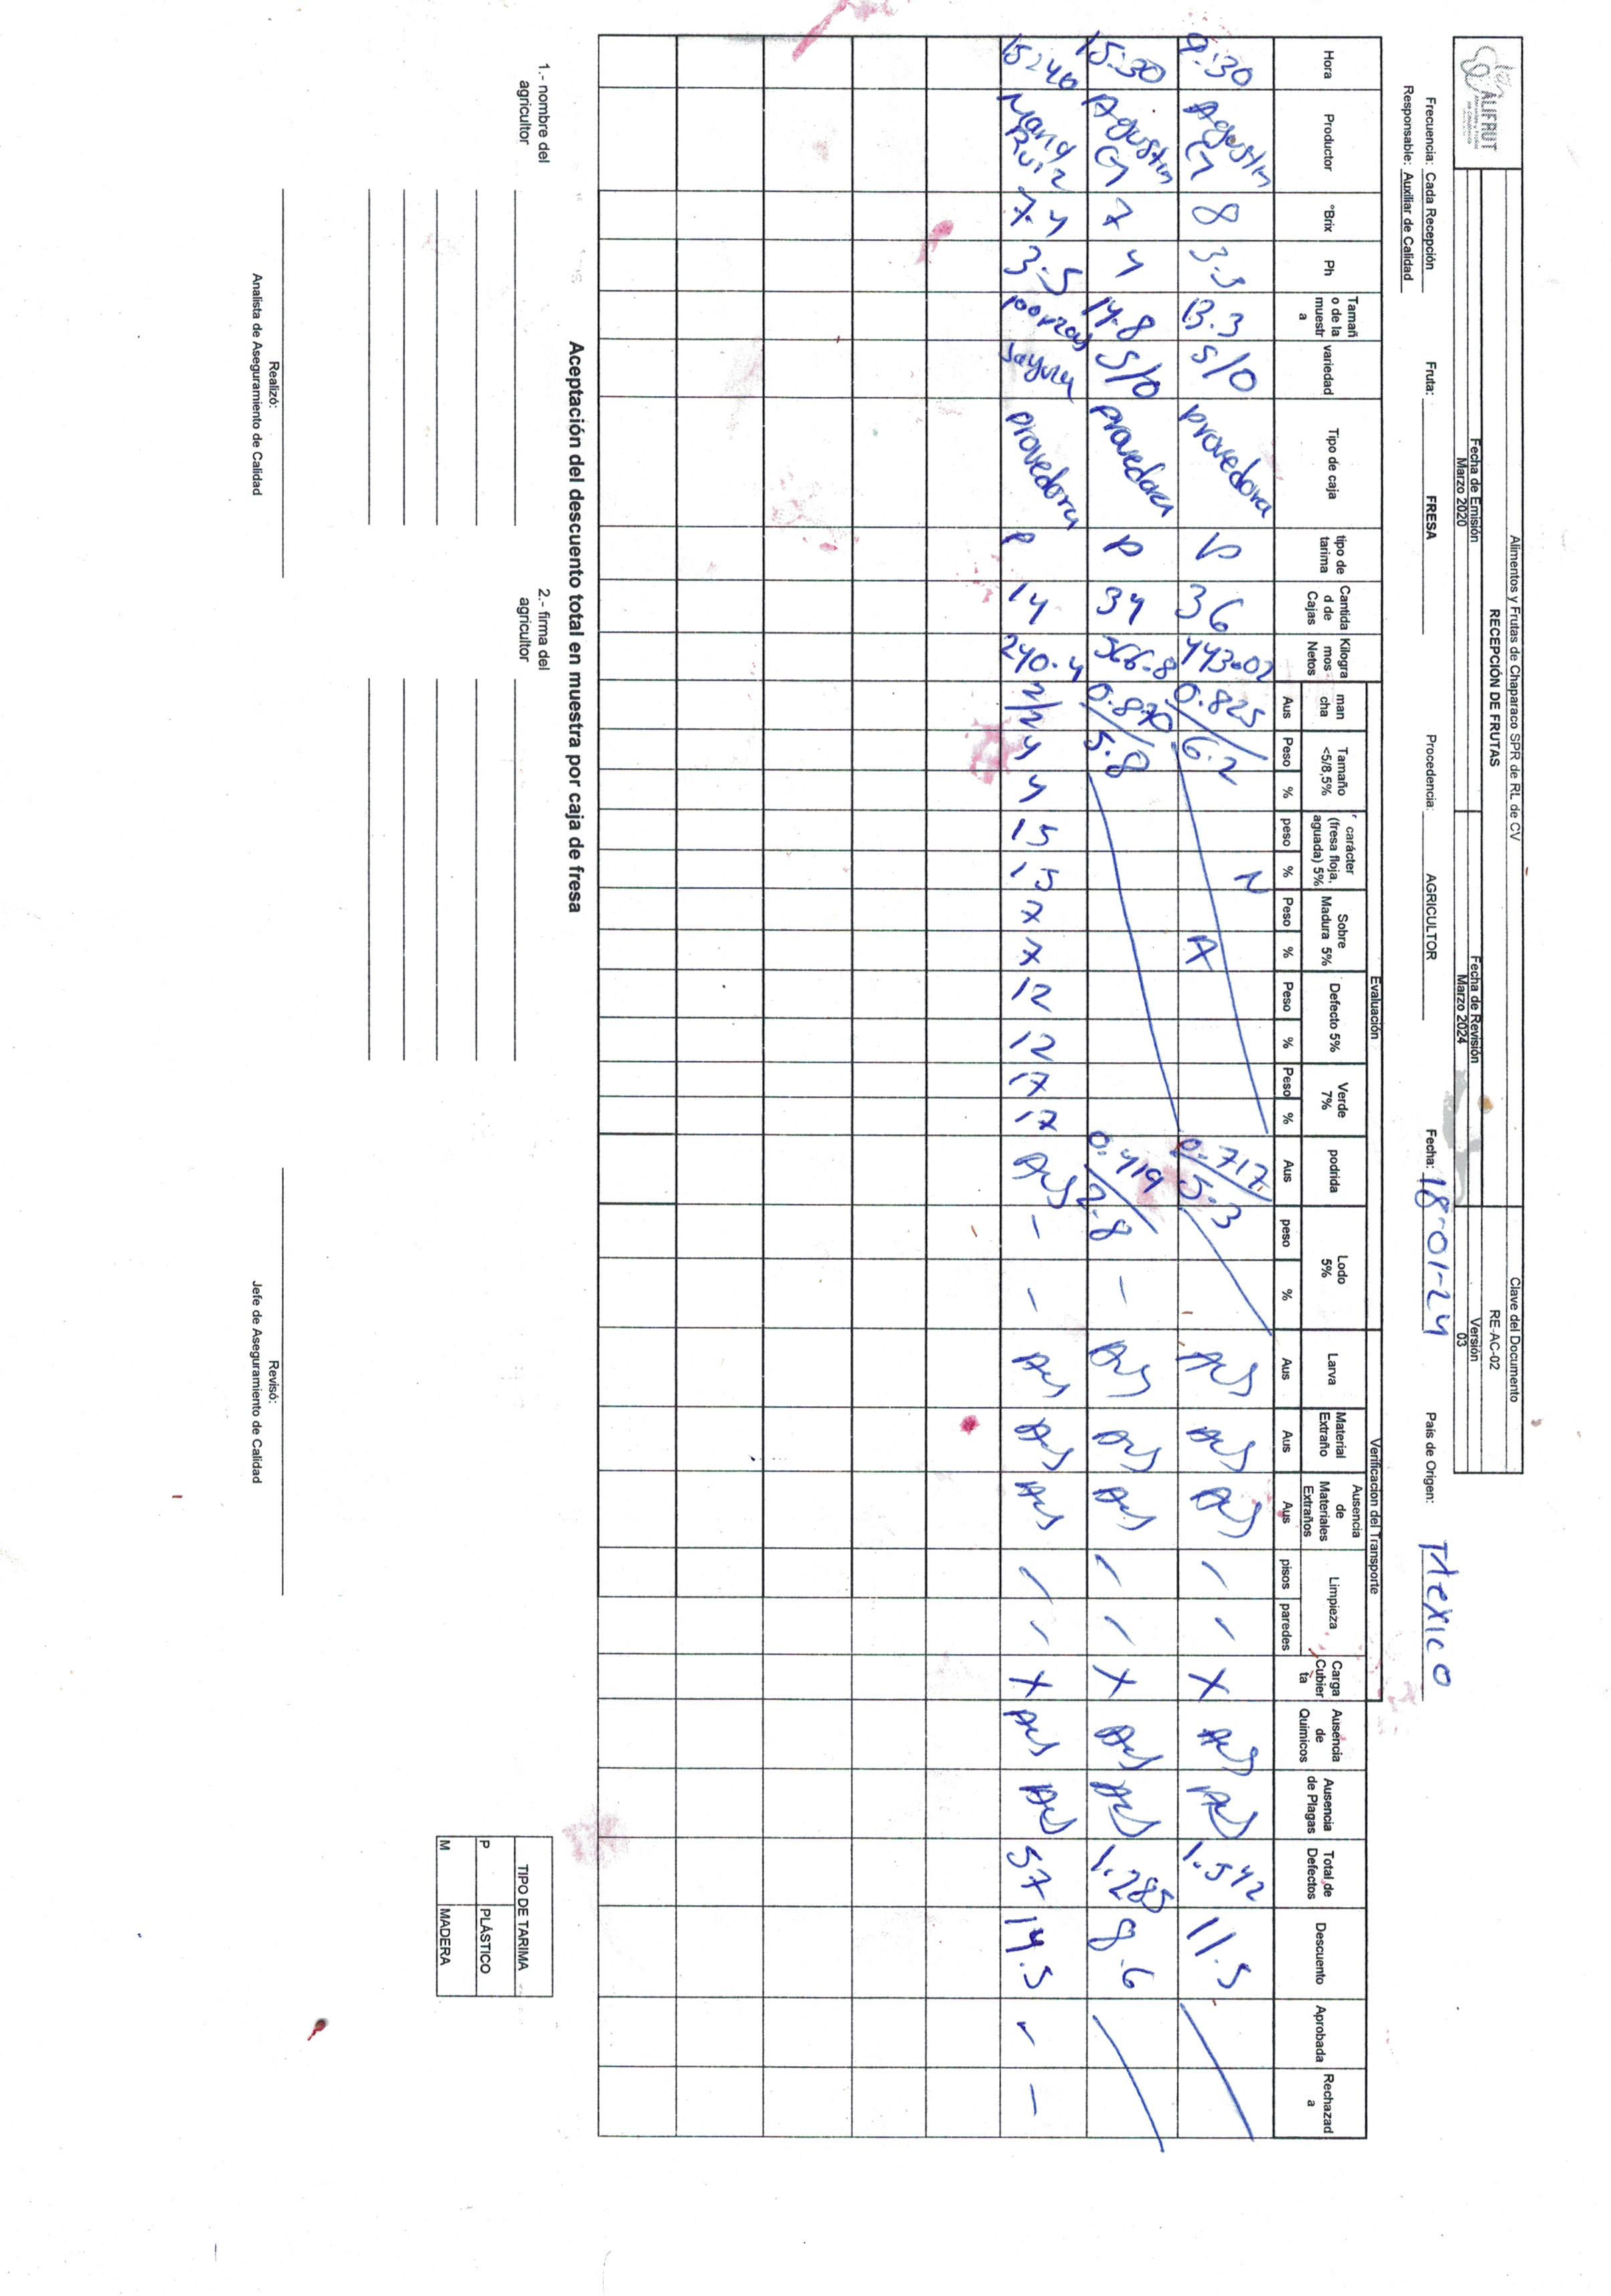 ALIFRUT
Alimentos y Frutas de Chaparaco SPR de RL de CV
Clave del Documento
RECEPCIÓN DE FRUTAS
RE-AC-02
Fecha de Emisión
Fecha de Revisión
Versión
Marzo 2020
Marzo 2024
03
Frecuencia: Cada Recepción Fruta: FRESA Procedencia: AGRICULTOR Fecha: 18-01-24 País de Origen: Mexico
Responsable: Auxiliar de Calidad
Evaluación Verificacion del Transporte
Hora Productor °Brix Ph Tamaño de la muestra variedad Tipo de caja tipo de tarima Cantidad de Cajas Kilogramos Netos mancha Tamaño <5/8,5% carácter (fresa floja, aguada) 5% Sobre Madura 5% Defecto 5% Verde 7% podrida Lodo 5% Larva Material Extraño Ausencia de Materiales Extraños Limpieza Carga Cubierta Ausencia de Quimicos Ausencia de Plagas Total de Defectos Descuento Aprobada Rechazada
Aus Peso % peso % Peso % Peso % Peso % Aus peso % Aus Aus Aus pisos paredes
9:30 Agustin 8 3.5 13.3 S/O Provedora P 36 443.02 0.825/6.2 N A 0.717/5.3 Aus Aus Aus - - X Aus Aus 1.542 11.5
15:30 Agustin 7 4 14.8 S/O Provedora P 34 566.8 0.870/5.8 0.419/2.8 - Aus Aus Aus - - X Aus Aus 1.285 8.6
15:40 Mary Ruiz 7.4 3.5 Provedora P 14 240.4 2/2 4 4 15 15 7 7 12 12 17 17 Aus - - Aus Aus Aus - - X Aus Aus 57 14.5 ✓ -
Aceptación del descuento total en muestra por caja de fresa
1.- nombre del agricultor
2.- firma del agricultor
TIPO DE TARIMA
P PLÁSTICO
M MADERA
Realizó:
Analista de Aseguramiento de Calidad
Revisó:
Jefe de Aseguramiento de Calidad